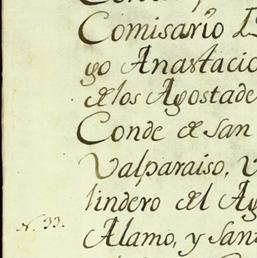 Comisario
go Anastacio
de los Agostade
Conde de San
Valparaiso, y
lindero del Ag
N. 33.
Alamo, y San